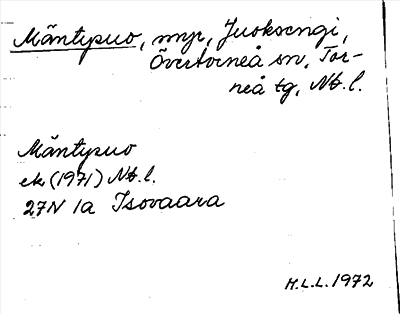 Mäntypuo, myr, Juoksengi,
Övertorneå sn, Tor-
neå tg, Nb. l.
Mäntypuo
ek (1971) Nb. l.
27N 1a Isovaara
H.L.L. 1972